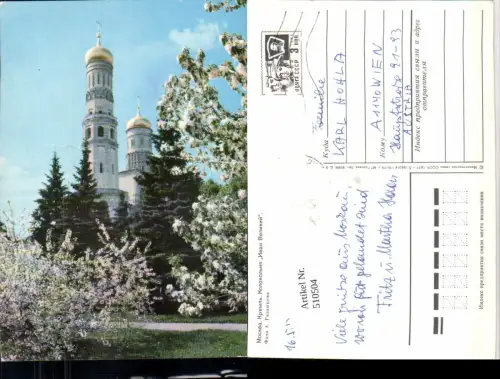 Москва. Кремль. Колокольня „Иван Великий".
Фото А.
Artikel Nr.
510504
16.5.
Viele Grüße aus Moskau.
wo wir gut gelandet sind
Fritz u. Martha
ПОЧТА СССР
Куда
Familie
KARL HOHLA
Кому
A 1140 WIEN
Hauptstrasse 91-93
AUSTRIA
Индекс предприятия связи и адрес
отправителя
Индекс предприятия связи места назначения